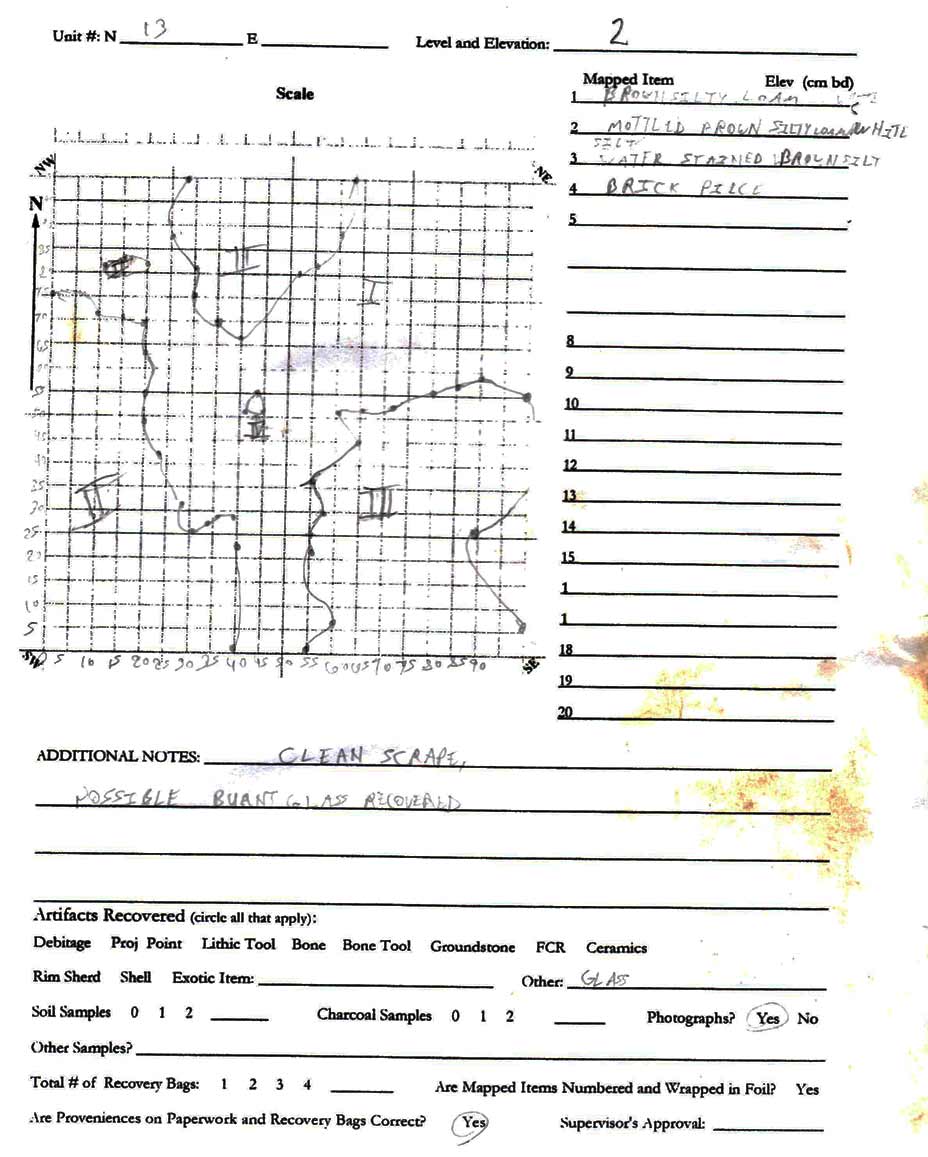 Unit #: N 13 E Level and Elevation: 2
Scale
Mapped Item Elev (cm bd)
1 BROWN SILTY LOAM
2 MOTTLED BROWN SILTY LOAM WHITE
SILT
3 WATER STAINED BROWN SILT
4 BRICK PIECE
5
8
9
10
11
12
13
14
15
1
1
18
19
20
NW
NE
N
II
I
75
70
65
50
IV
45
40
35
II
III
30
25
20
15
10
5
SW 0 5 10 15 20 25 30 35 40 45 50 55 60 65 70 75 80 85 90 SE
ADDITIONAL NOTES: CLEAN SCRAPE,
POSSIBLE BURNT GLASS RECOVERED
Artifacts Recovered (circle all that apply):
Debitage Proj Point Lithic Tool Bone Bone Tool Groundstone FCR Ceramics
Rim Sherd Shell Exotic Item: Other: GLASS
Soil Samples 0 1 2 Charcoal Samples 0 1 2 Photographs? Yes No
Other Samples?
Total # of Recovery Bags: 1 2 3 4 Are Mapped Items Numbered and Wrapped in Foil? Yes
Are Proveniences on Paperwork and Recovery Bags Correct? Yes Supervisor's Approval: